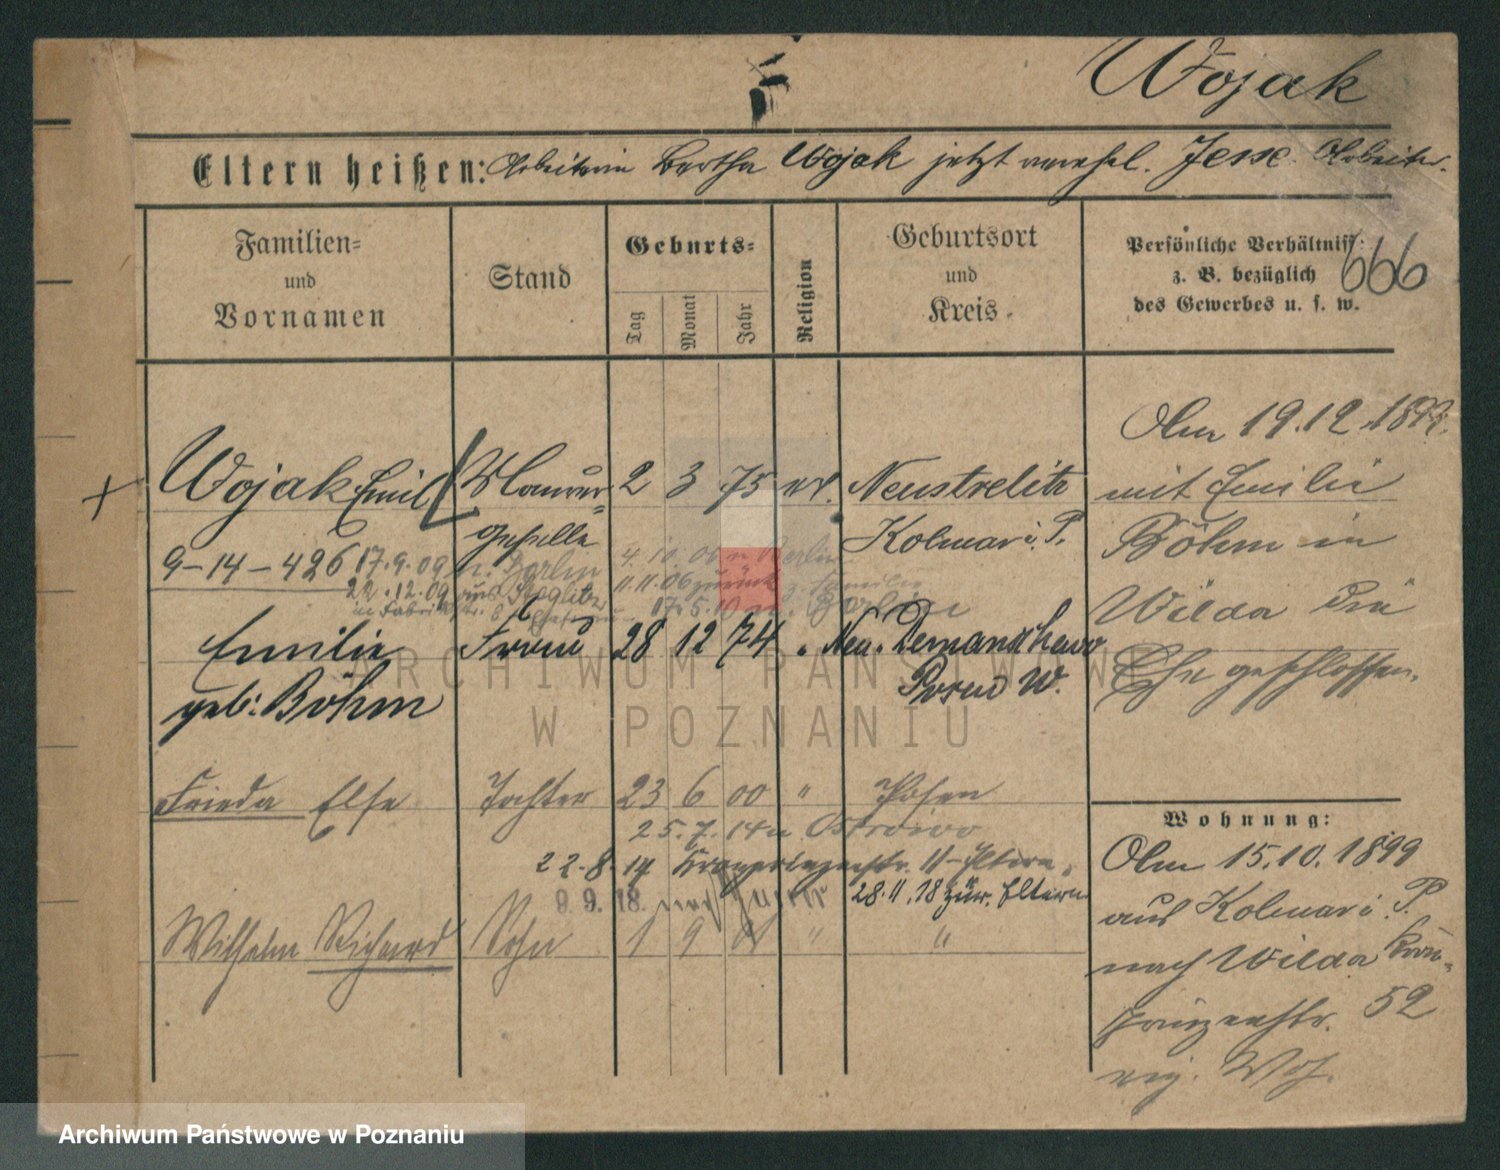 Wojak
Eltern heißen: Arbeiterin Bertha Wojak jetzt verehel. Jesse. Arbeiter.
Familien-
und
Vornamen
Stand
Geburts-
Tag
Monat
Jahr
Religion
Geburtsort
und
Kreis
Persönliche Verhältniss:
z. B. bezüglich
des Gewerbes u. s. w.
666
Wojak Emil Maurer- 2 3 75 ev. Neustrelitz
geselle Kolmar i. P.
9-14-426 17.9.09 n. Berlin 4. 10. 06 n Berlin
22.12.09 aus Steglitz 11.11.06 zurück z. Familie
17.5.10 n. Berlin
Emilie Frau 28 12 74 " Neu-Demanchewo
geb: Böhm Posen W.
Frieda Else Tochter 23 6 00 " Posen
25.7.14 n Ostrowo
22.8.14 Kronprinzenstr. 11-Eltern.
9.9.18. 28.11.18 zur. Eltern
Wilhelm Richard Sohn 1 9 01 " "
Am 19.12.1899.
mit Emilie
Böhm in
Wilda die
Ehe geschlossen.
Wohnung:
Am 15.10.1899
aus Kolmar i. P.
nach Wilda Kron-
prinzenstr. 52
eig. Wo.
ARCHIWUM PAŃSTWOWE
W POZNANIU
Archiwum Państwowe w Poznaniu